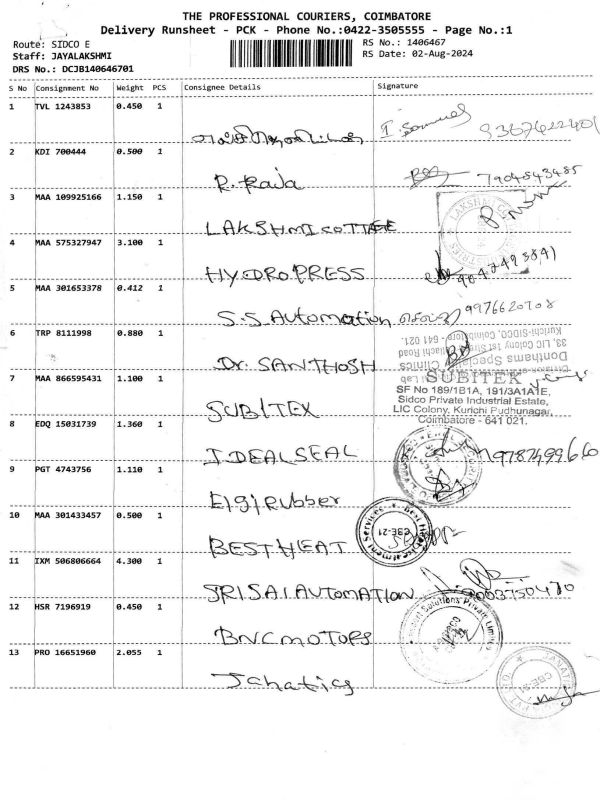 THE PROFESSIONAL COURIERS, COIMBATORE
Delivery Runsheet - PCK - Phone No.:0422-3505555 - Page No.:1
Route: SIDCO E
Staff: JAYALAKSHMI
DRS No.: DCJB140646701
RS No.: 1406467
RS Date: 02-Aug-2024
S No Consignment No Weight PCS Consignee Details Signature
1 TVL 1243853 0.450 1
I. Samuel
2 KDI 700444 0.500 1
R. Raja 7904543485
3 MAA 109925166 1.150 1
LAKSHMI COTTAGE
4 MAA 575327947 3.100 1
HYDROPRESS
5 MAA 301653378 0.412 1
S.S. Automation 9976620708
6 TRP 8111998 0.880 1
Dr. SANTHOSH
Donthams Speciality Clinics
33, LIC Colony 1st Street, Pillaiyar Road
Kurichi-SIDCO, Coimbatore - 641 021.
7 MAA 866595431 1.100 1
SUBITEX
SUBITEK
SF No 189/1B1A, 191/3A1A1E,
Sidco Private Industrial Estate,
LIC Colony, Kurichi Pudhunagar,
Coimbatore - 641 021.
8 EDQ 15031739 1.360 1
IDEAL SEAL
9 PGT 4743756 1.110 1
Elgi Rubber
10 MAA 301433457 0.500 1
BEST HEAT
Best Heat Treatment Services
CBE-21
11 IXM 506806664 4.300 1
SRI SAI AUTOMATION
12 HSR 7196919 0.450 1
BNC MOTORS
Solutions Private Limited
13 PRO 16651960 2.055 1
Janatics
CBE-21